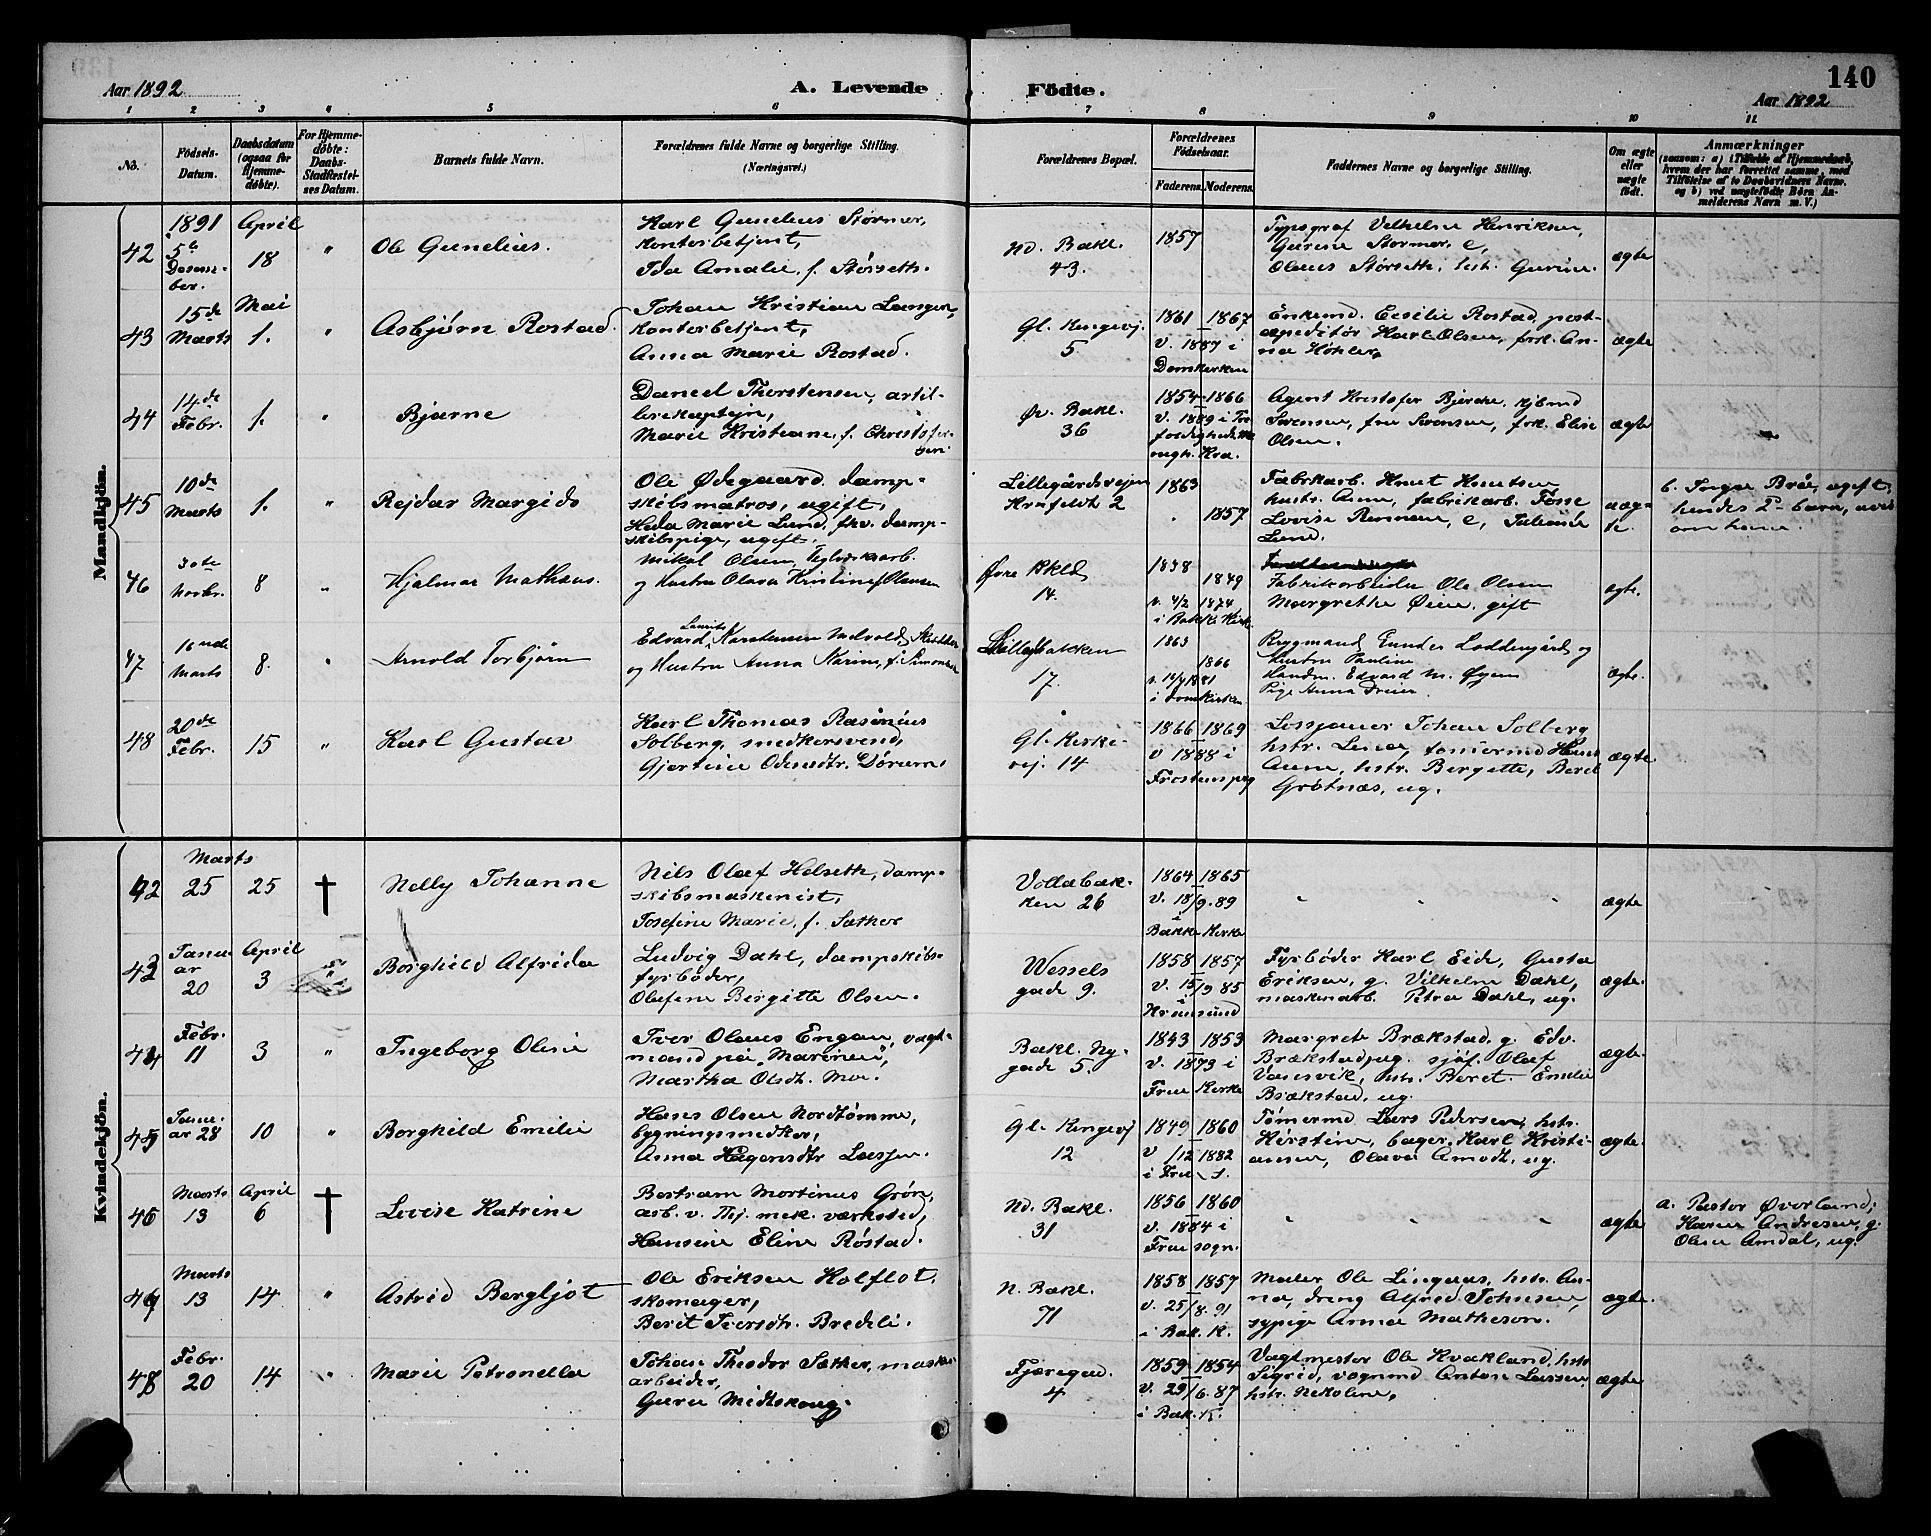 Aar 1892
A. Levende
Födte.
140
Aar 1892
1 2 3 4 5 6 7 8 9 10 11
No.
Födsels-
Datum.
Daabsdatum
(ogsaa for
Hjemme-
döbte).
For Hjemme-
döbte:
Daabs-
Stadfæstel-
ses Datum.
Barnets fulde Navn.
Forældrenes fulde Navne og borgerlige Stilling.
(Næringsvei.)
Forældrenes Bopæl.
Forældrenes
Födselsaar.
Faderens. Moderens.
Faddernes Navne og borgerlige Stilling.
Om ægte
eller
uægte
født.
Anmærkninger
(saasom: a) i Tilfælde af Hjemmedaab,
hvem der har forrettet samme, med
Tilföielse af to Daabsvidners Navne,
og b) ved uægtefödte Börn An-
melderens Navn m. V.)
Mandkjön.
42
1891
5te
Decem-
ber.
April
18
"
Ole Gunelius.
Karl Gunelius Størmer,
kontorbetjent,
Ida Amalie, f. Størseth.
Nd. Bakl.
43.
1857
Typograf Vilhelm Henriksen,
Gurine Størmer, e,
Olaus Størseth, hst. Gurine.
ægte
43
15de
Marts
Mai
1.
"
Asbjørn Rostad.
Johan Kristian Langen,
kontorbetjent,
Anna Marie Rostad.
Gl. Kongevej.
5.
1861 – 1867
v. 1887 i
Domkirken
Enkemd. Cecilie Rostad, post-
expeditør Karl Olsen, frk. An-
na Høhler,
ægte
44
14de
Febr.
1.
"
Bjarne
Daniel Thorstensen, artil-
lerikaptejn,
Marie Kristiane, f. Christofer-
sen
Øv. Bakl.
36
1854 – 1866
v. 1889 i Tre-
foldighedsk.
Kra.
Agent Kristofer Bjerche, kjbmd
Sørensen, fru Sørensen, frk. Elise
Olsen.
ægte
45
10de
Marts
1.
"
Rejdar Margido
Ole Ødegaard, damp-
skibsmatros, ugift,
Heda Marie Lund, fhv. damp-
skibspige, ugift.
Lillegårdsvejen
Krafeldt 2
1863
1857
Fabrikarb. Knut Knutsen
hustr. Anne, fabrikarb. Fosse
Lovise Renmæn, e, Juliane
Lund.
uæg-
te.
b. Inger Bråe, ugift,
hendes 2det barn,
46
30te
Novbr.
8
"
Hjalmar Mathæus.
Mikal Olsen, Teglværksarb.
og Hustru Olava Kristine f. Olausen
Øvre Bkld
14.
1838
1849
v. 4/2 1874
i Bakk. Kirk
Fabrikarbeider Ole Olsen
Margrethe Øien, gift
ægte.
47
16nde
Marts
8.
"
Arnold Torbjørn
Edvard Laurits Karstensen Indvold, Skibstøm
og Hustru Anna Karine, f. Simonsen
Lillegbakken
17.
1863
1866
i Domkirken
Brygmand Gunder Loddengård og
hustru Pauline
Handm. Edvard M. Øyen
Pige Anna Dreier.
ægte.
48
20de
Febr.
15
"
Karl Gustav
Karl Thomas Rasmus
Solberg, snedkersvend,
Gjertine Odinsdtr. Dørum
Gl. Kirke-
vej. 14
1866 – 1869
v 1888 i
Frostenspg
Losjaner Johan Solberg
hstr. Lina, tømmermd Hans
Aune, hstr. Bergitte, Beret
Grøtnæs, ug.
ægte
Kvindekjön.
42
Marts
25
25
†
Nelly Johanne
Nils Olaf Helseth, damp-
skibsmaskinist,
Josefine Marie, f. Sæther
Vollabak-
ken 26
1864 – 1865
v. 18/9. 89
i
Bakke Kirke
"
"
"
ægte
43
Janu-
ar
20
April
3
"
Borghild Alfrida
Ludvig Dahl, dampskibs-
fyrbøder,
Olufine Birgitte Olsen.
Wessels
gade 9.
1858 – 1857
v. 15/9 85
Kr.sund
Fyrbøder Karl Eide, Gusta
Eriksen, g. Vilhelm Dahl,
maskinarb. Petra Dahl, ug.
ægte.
44
Febr.
11
3
"
Ingeborg Oline
Iver Olaus Engan, vagt-
mand på „Marinen",
Martha Olsdt. Moe.
Bakl. Ny-
gade 5.
1843 – 1853
v. 1873 i
Frue Kirke
Margrete Brækstad, g. Edv.
Brækstad, ug. sjøf. Olaf
Vansvik, hst. Beret. Emilie
Brækstad, ug.
ægte.
45
Janu-
ar 28
10
"
Borghild Emilie
Hans Olsen Nordtømme,
bygningssnedker,
Anna Hågensdtr Lassen.
Gl. Kongevj
12
1849 – 1860
v /12 1882
i Frue s.
Tømermd Lars Pedersen, hstr.
Kirstine, bager Karl Kristi-
ansen, Olava Amodt, ug.
ægte.
46
Marts
13
April
6
†
Lovise Katrine
Bertram Mortinus Grøn,
arb. v. Thj. mek. værksted,
Hansine Eline Røstad.
Nd. Bakl.
31
1856 – 1860
v. 1884 i
Frue sogn.
"
"
"
ægte
a. Pastor Øverland,
Karen Andresen, g.
Oline Amdal, ug.
47
Marts
13
14
"
Astrid Bergljot
Ole Eriksen Holflot,
skomager,
Berit Iversdtr. Bredeli.
N. Bakl.
71
1858 – 1857
v. 25/8. 91
i Bak. K.
Maler Ole Lingaas, hstr. An-
na, dreng Alfred Johnsen,
sypige Anna Matheson.
ægte.
48
Febr.
20
14
"
Marie Petronella
Johan Theodor Sæther, mask.
arbeider,
Guru Midtskoug.
Fjæregad.
4
1859 – 1854
v. 29/6. 87
i Bak. K.
Vagtmester Ole Kvakland, hstr
Sigrid, vognmd Anton Lassen,
hstr. Nekoline,
ægte